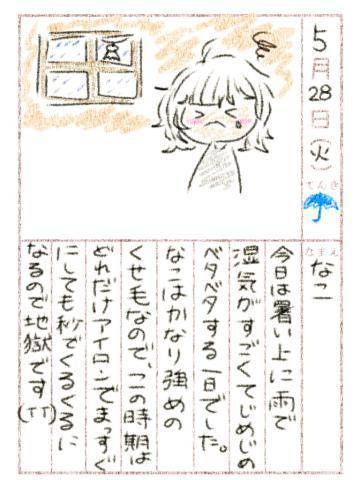 5月28日(火)
てんき
なまえ
なこ
今日は暑い上に雨で
湿気がすごくてじめじめ
ベタベタする一日でした。
なこはかなり強めの
くせ毛なので、この時期は
どれだけアイロンでまっすぐ
にしても秒でくるくるに
なるので地獄です(TT)